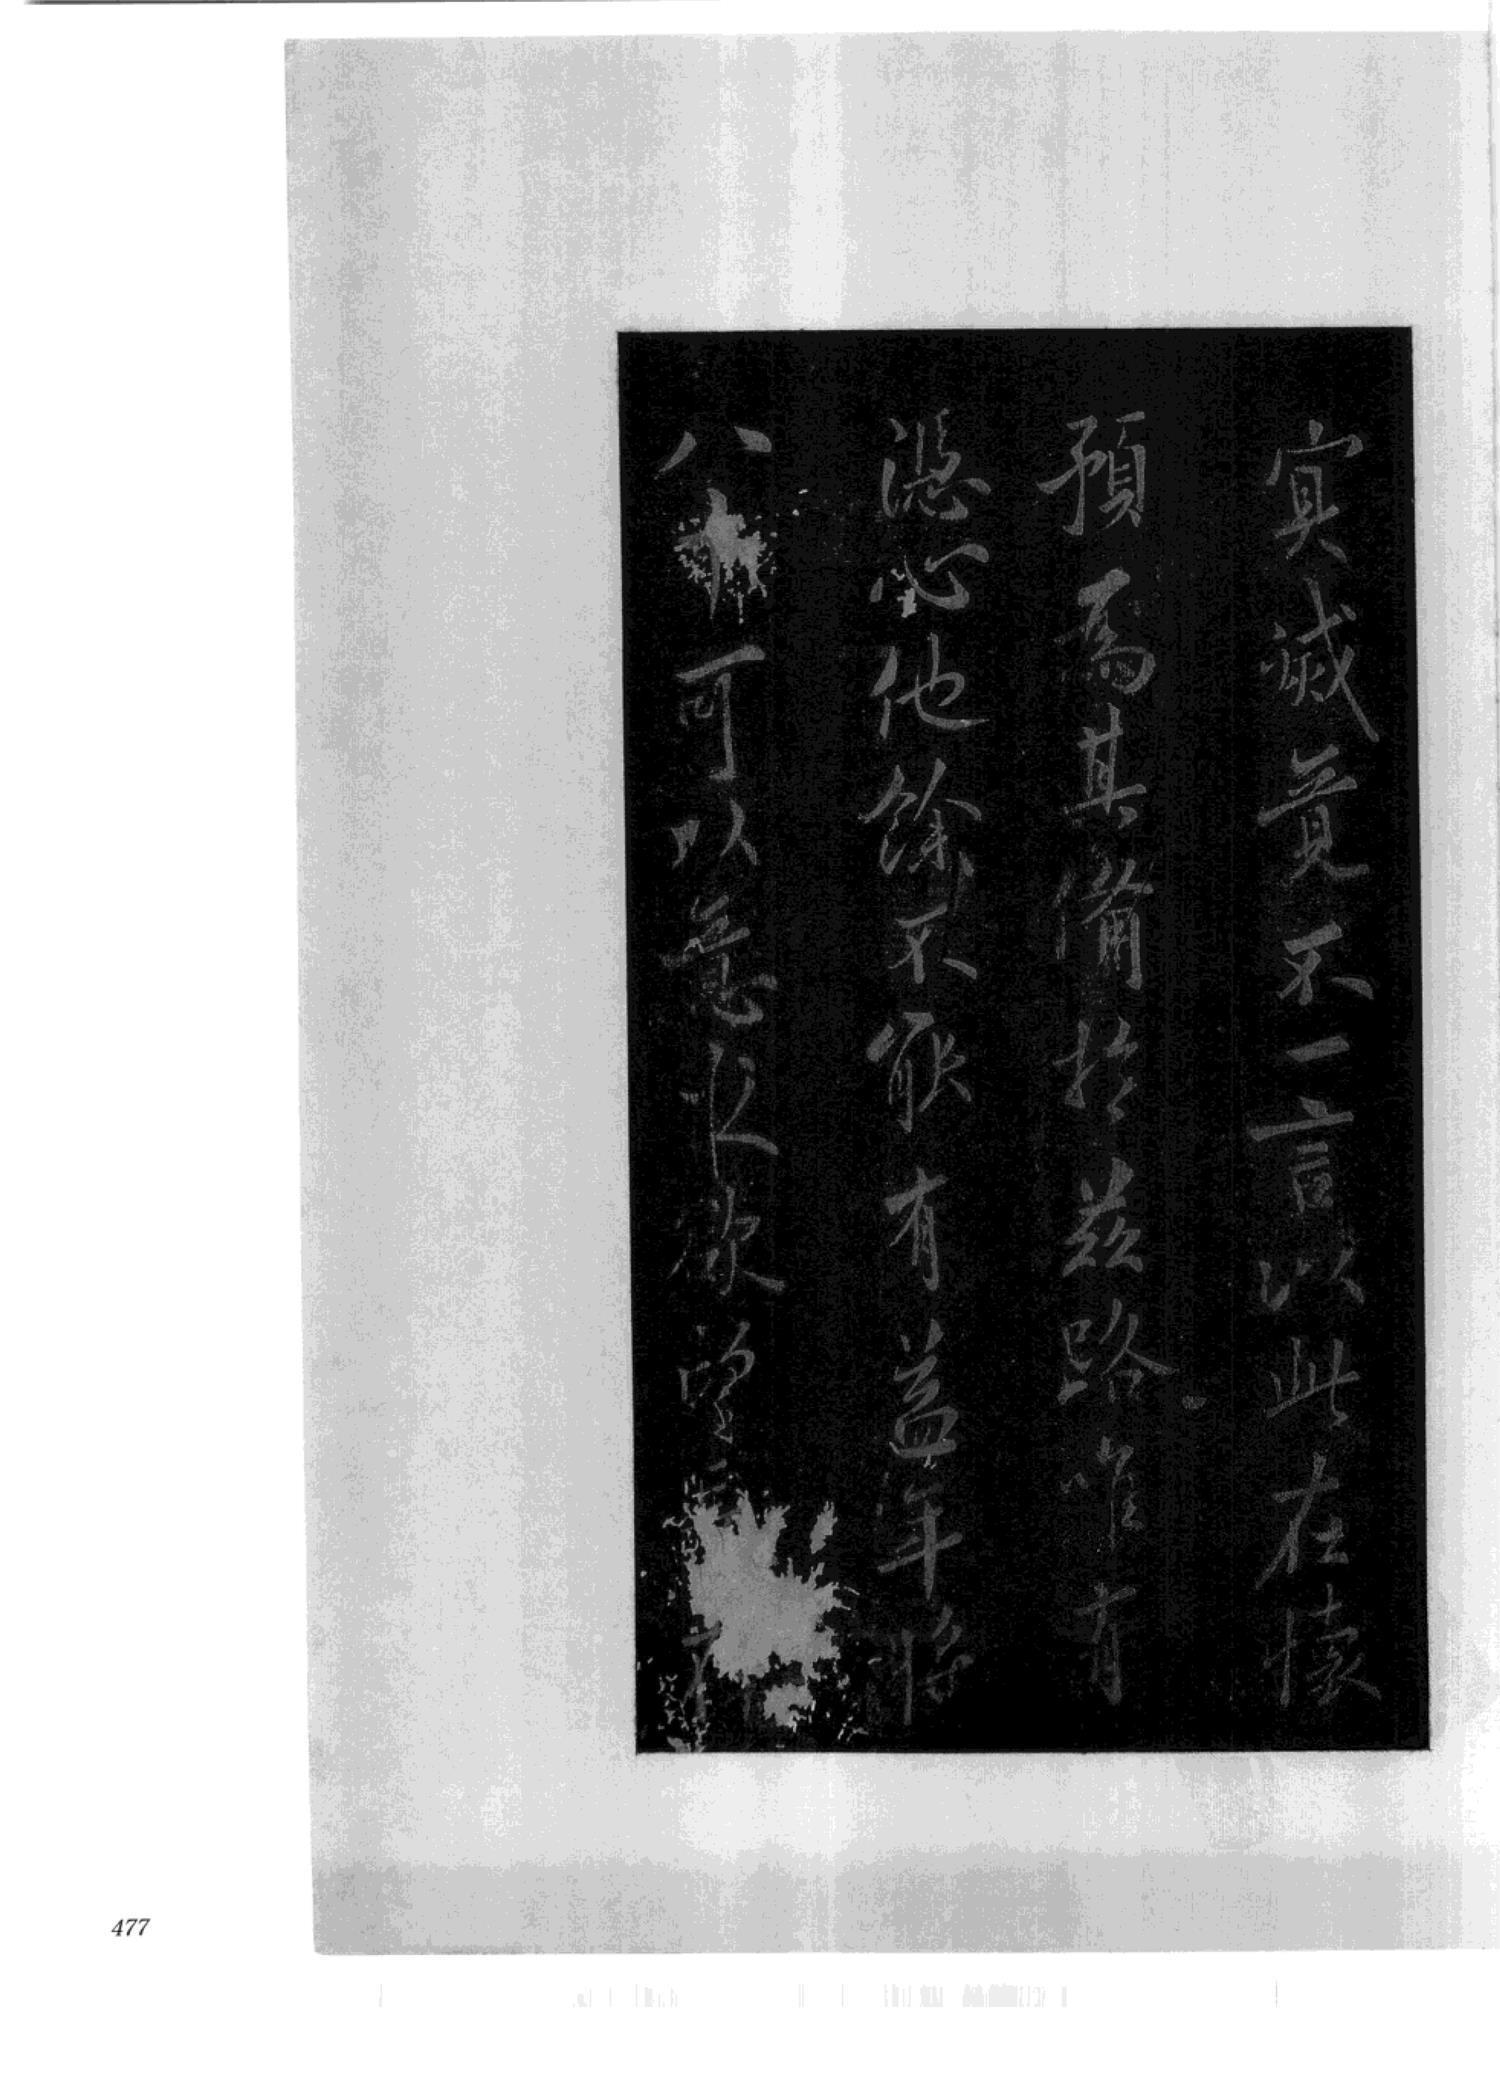 寅誠竟不一言以此在懷
預爲其備於茲路唯有
心他餘不能有益年將
八可以意求欲望
477